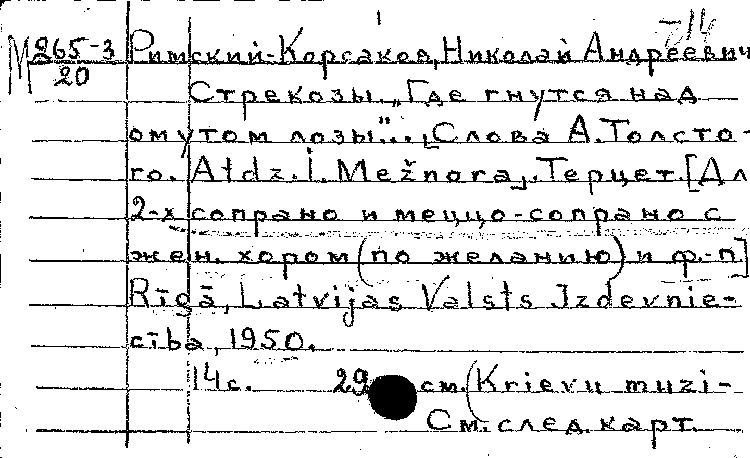 М 265-3 Римский-Корсаков, Николай Андреевич
20 Стрекозы. „Где гнутся над
омутом лозы"... [Слова А. Толсто-
го. Atdz. I. Mežnora]. Терцет. [Дл
2-х сопрано и меццо-сопрано с
жен. хором (по желанию) и ф.-п]
Rīgā, Latvijas Valsts Izdevnie-
cība, 1950.
14 с. 29 см. (Krievu muzi-
См. след. карт.